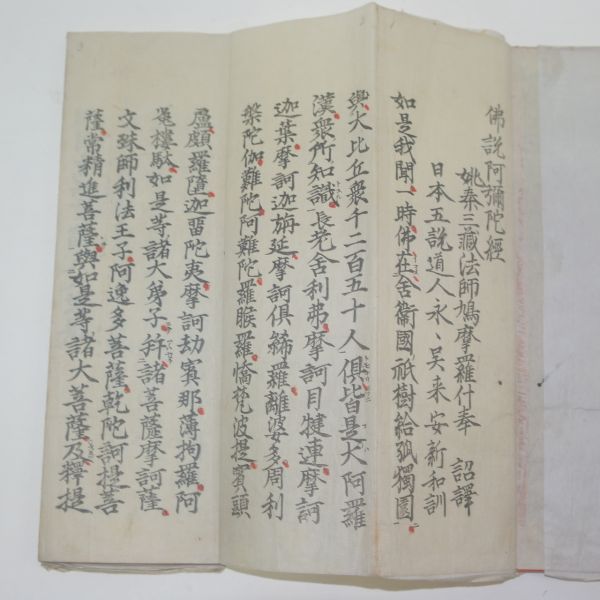 佛說阿彌陀經
姚秦三藏法師鳩摩羅什奉 詔譯
日本五說道人永、吴来安新和訓
如是我聞一時佛在舍衞國祇樹給孤獨園
與大比丘衆千二百五十人俱皆是大阿羅
漢衆所知識長老舍利弗摩訶目犍連摩訶
迦葉摩訶迦旃延摩訶俱絺羅離婆多周利
槃陀伽難陀阿難陀羅睺羅憍梵波提賓頭
盧頗羅墮迦畱陀夷摩訶劫賓那薄拘羅阿
㝹樓馱如是等諸大弟子幷諸菩薩摩訶薩
文殊師利法王子阿逸多菩薩乾陀訶提菩
薩常精進菩薩與如是等諸大菩薩及釋提